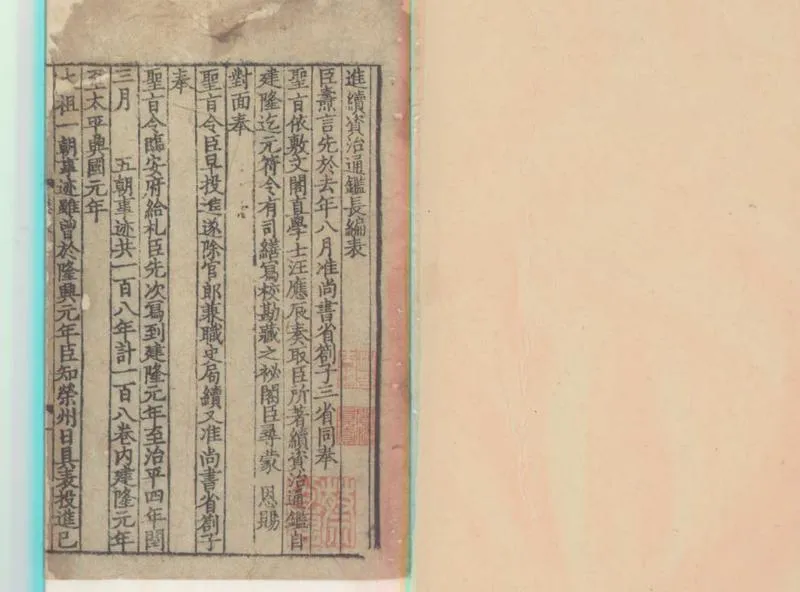 進續資治通鑑長編表
臣燾言先於去年八月准尚書省劄子三省同奉
聖旨依敷文閣直學士汪應辰奏取臣所著續資治通鑑自
建隆迄元符令有司繕寫校勘藏之祕閣臣尋蒙 恩賜
對面奉
聖旨令臣早投進遂除官郎兼職史局續又准尚書省劄子
奉
聖旨令臨安府給札臣先次寫到建隆元年至治平四年閏
三月 五朝事迹共一百八年計一百八卷内建隆元年
至太平興國元年
太祖一朝事迹雖曾於隆興元年臣知榮州日具表投進已